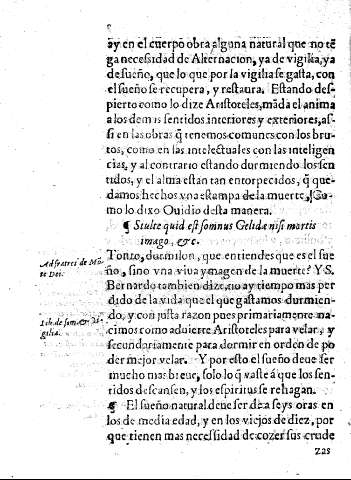 ay en el cuerpo obra alguna natural que no tẽ
ga necessidad de Alternacion, ya de vigilia, ya
de sueño, que lo que por la vigilia se gasta, con
el sueño se recupera, y restaura. Estando des-
pierto como lo dize Aristoteles, mãda el anima
a los demas sentidos interiores y exteriores, as-
si en las obras q̃ tenemos comunes con los bru-
tos, como en las intelectuales con las inteligen
cias, y al contrario estando durmiendo los sen
tidos, y el alma estan tan entorpecidos, q̃ que-
damos hechos vna estampa de la muerte, Co-
mo lo dixo Ouidio desta manera.
¶ Stulte quid est somnus Gelidæ nisi mortis
imago, &c.
Tonto, dormilon, que entiendes que es el sue
ño, sino vna viua ymagen de la muerte? Y S.
Ad fratres de Mõ
te Dei.
Bernardo tambien dize, no ay tiempo mas per
dido de la vida que el que gastamos durmien-
do, y con justa razon pues primariamente na-
Lib. de som. & vi-
gilia.
cimos como aduierte Aristoteles para velar, y
secundariamente para dormir en orden de po
der mejor velar. Y por esto el sueño deue ser
mucho mas breue, solo lo q̃ vaste á que los sen-
tidos descansen, y los espiritus se rehagan.
¶ El sueño natural deue ser de a seys oras en
los de media edad, y en los viejos de diez, por
que tienen mas necessidad de cozer sus crude
zas